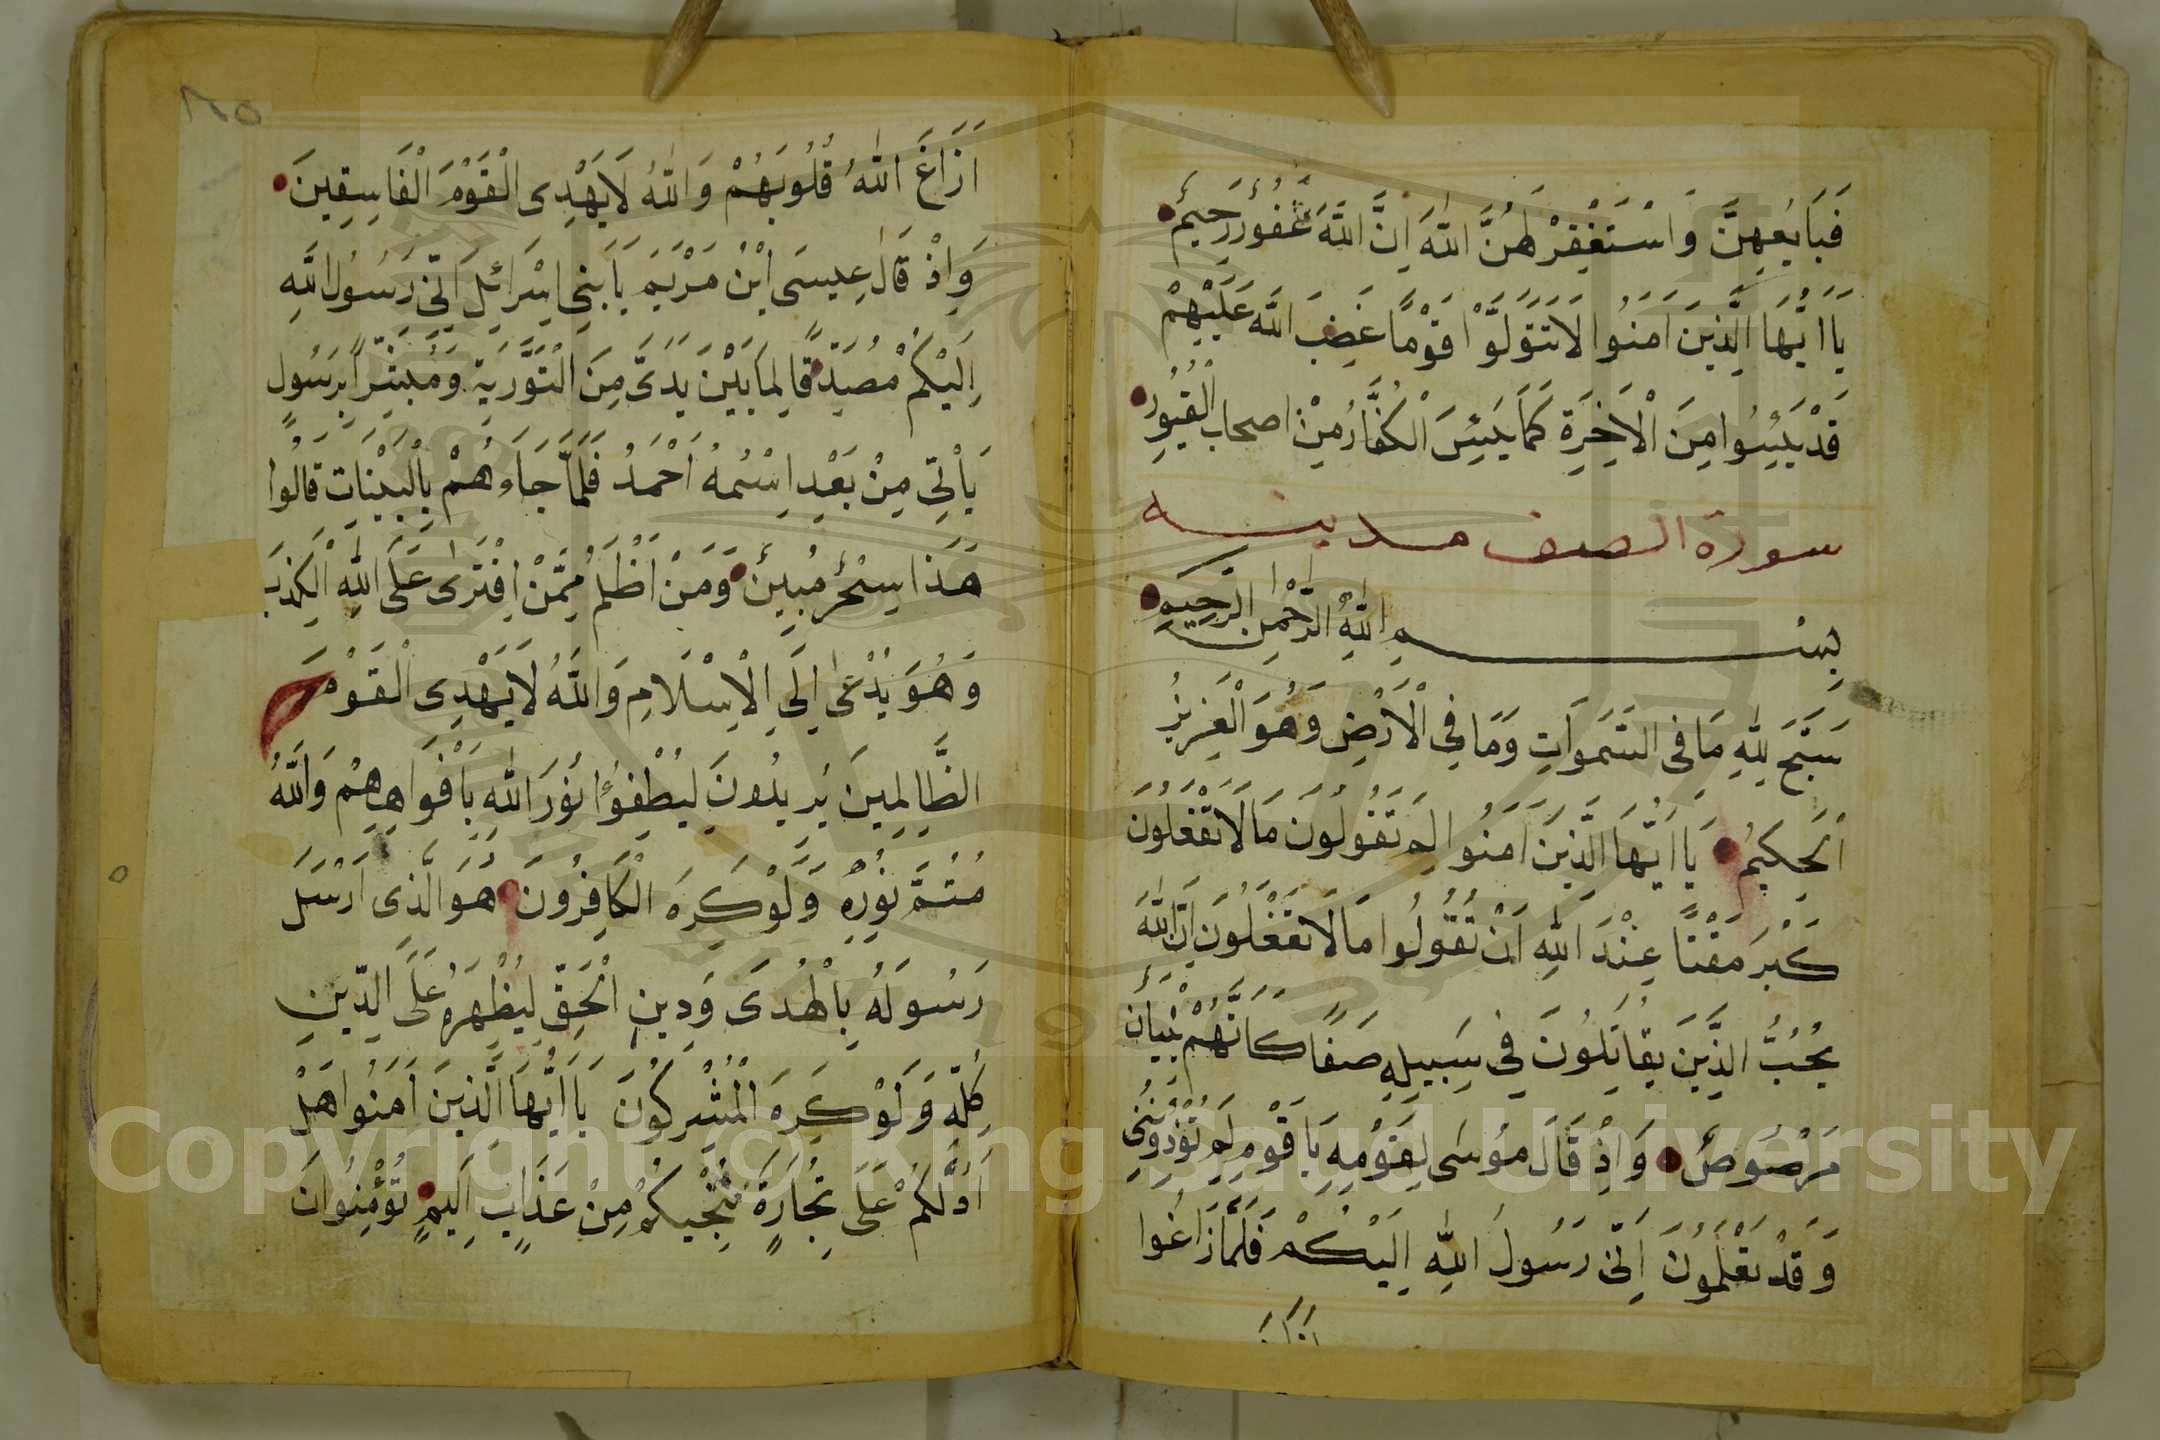 فَبَايِعْهِنَّ وَاسْتَغْفِرْ لَهُنَّ اللّٰهَ اِنَّ اللّٰهَ غَفُورٌ رَحِيمٌ
يَا اَيُّهَا الَّذِينَ اٰمَنُوا لَا تَتَوَلَّوْا قَوْمًا غَضِبَ اللّٰه عَلَيْهِمْ
قَدْ يَئِسُوا مِنَ الْاٰخِرَةِ كَمَا يَئِسَ الْكُفَّارُ مِنْ اصحاب الْقُبُورِ
سورة الصف مدينه
بِسْمِ اللّٰهِ الرَّحْمٰنِ الرَّحِيمِ
سَبَّحَ لِلّٰهِ مَا فِى السَّمٰوَاتِ وَمَا فِى الْاَرْضِ وَهُوَ الْعَزِيزُ
الْحَكِيمُ يَا اَيُّهَا الَّذِينَ اٰمَنُوا لِمَ تَقُولُونَ مَا لَا تَفْعَلُونَ
كَبُرَ مَقْتًا عِنْدَ اللّٰهِ اَنْ تَقُولُوا مَا لَا تَفْعَلُونَ اِنَّ اللّٰهَ
يُحِبُّ الَّذِينَ يُقَاتِلُونَ فِى سَبِيلِهِ صَفًا كَانَّهُمْ بُنْيَانٌ
مَرْصُوصٌ وَاِذْ قَالَ مُوسَى لِقَوْمِهِ يَا قَوْمِ لِمَ تُؤْذُونَنِى
وَقَدْ تَعْلَمُونَ اَنِّى رَسُولُ اللّٰهِ اِلَيْكُمْ فَلَمَّا زَاغُوا
ازاغ
٢٨٥
اَزَاغَ اللّٰهُ قُلُوبَهُمْ وَاللّٰهُ لَا يَهْدِى الْقَوْمَ الْفَاسِقِينَ
وَاِذْ قَالَ عِيسَى ابْنُ مَرْيَمَ يَا بَنِى اِسْرَائِلَ اِنِّى رَسُولُ اللّٰهِ
اِلَيْكُمْ مُصَدِّقًا لِمَا بَيْنَ يَدَىَّ مِنَ التَّوْرَيةِ وَمُبَشِّرًا بِرَسُولٍ
يَاْتِى مِنْ بَعْدِى اسْمُهُ اَحْمَدُ فَلَمَّا جَاءَهُمْ بِالْبَيِّنَاتِ قَالُوا
هٰذَا سِحْرٌ مُبِينٌ وَمَنْ اَظْلَمُ مِمَّنْ اِفْتَرٰى عَلَى اللّٰهِ الْكَذِبَ
وَهُوَ يُدْعٰى اِلَى الْاِسْلَامِ وَاللّٰهُ لَا يَهْدِى الْقَوْمَ
الظَّالِمِينَ يُرِيدُونَ لِيُطْفِؤُا نُورَ اللّٰهِ بِاَفْوَاهِهِمْ وَاللّٰهُ
مُتِمُّ نُورِهِ وَلَوْ كَرِهَ الْكَافِرُونَ هُوَ الَّذِى اَرْسَلَ
رَسُولَهُ بِالْهُدَى وَدِينِ الْحَقِّ لِيُظْهِرَهُ عَلَى الدِّينِ
كُلِّهِ وَلَوْ كَرِهَ الْمُشْرِكُونَ يَا اَيُّهَا الَّذِينَ اٰمَنُوا هَلْ
اَدُلُّكُمْ عَلَى تِجَارَةٍ تُنْجِيكُمْ مِنْ عَذَابٍ اَلِيمٍ تُؤْمِنُونَ
Copyright © King Saud University